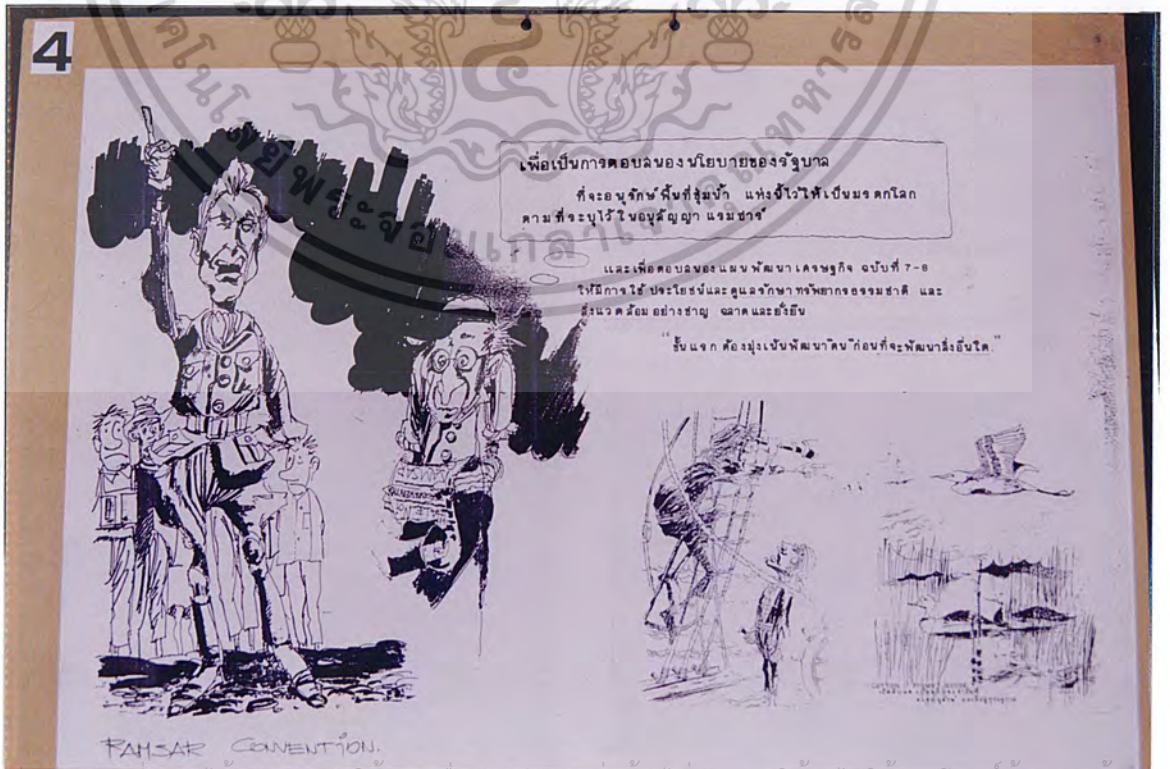 4
เพื่อเป็นการตอบสนองนโยบายของรัฐบาล
ที่จะอนุรักษ์พื้นที่ชุ่มน้ำ แห่งนี้ไว้ให้เป็นมรดกโลก
ตามที่ระบุไว้ในอนุสัญญา แรมซาร์
และเพื่อตอบสนองแผนพัฒนาเศรษฐกิจ ฉบับที่ 7-8
ให้มีการใช้ประโยชน์และดูแลรักษาทรัพยากรธรรมชาติ และ
สิ่งแวดล้อมอย่างชาญ ฉลาดและยั่งยืน
"ขั้นแรก ต้องมุ่งเน้นพัฒนา"คน"ก่อนที่จะพัฒนาสิ่งอื่นใด"
RAMSAR CONVENTION.